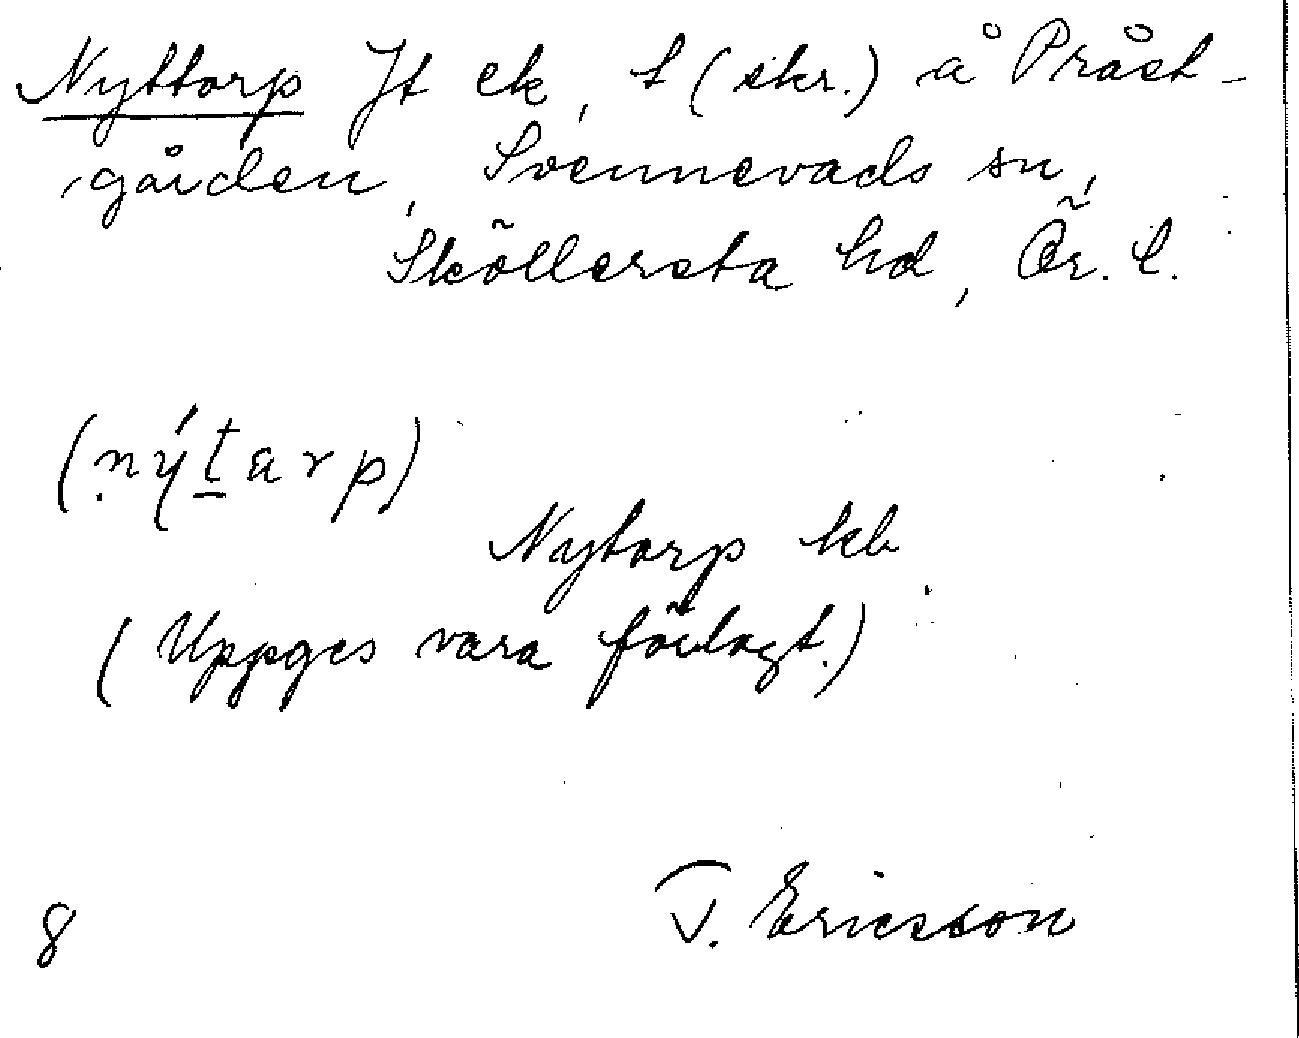 Nyttorp Jt ek, t (skr.) å Präst-
gården, Svennevads sn,
Sköllersta hd, Ör. l.
(nýtarp)
Nytorp kb
(Uppges vara förlagt.)
8
T. Ericsson